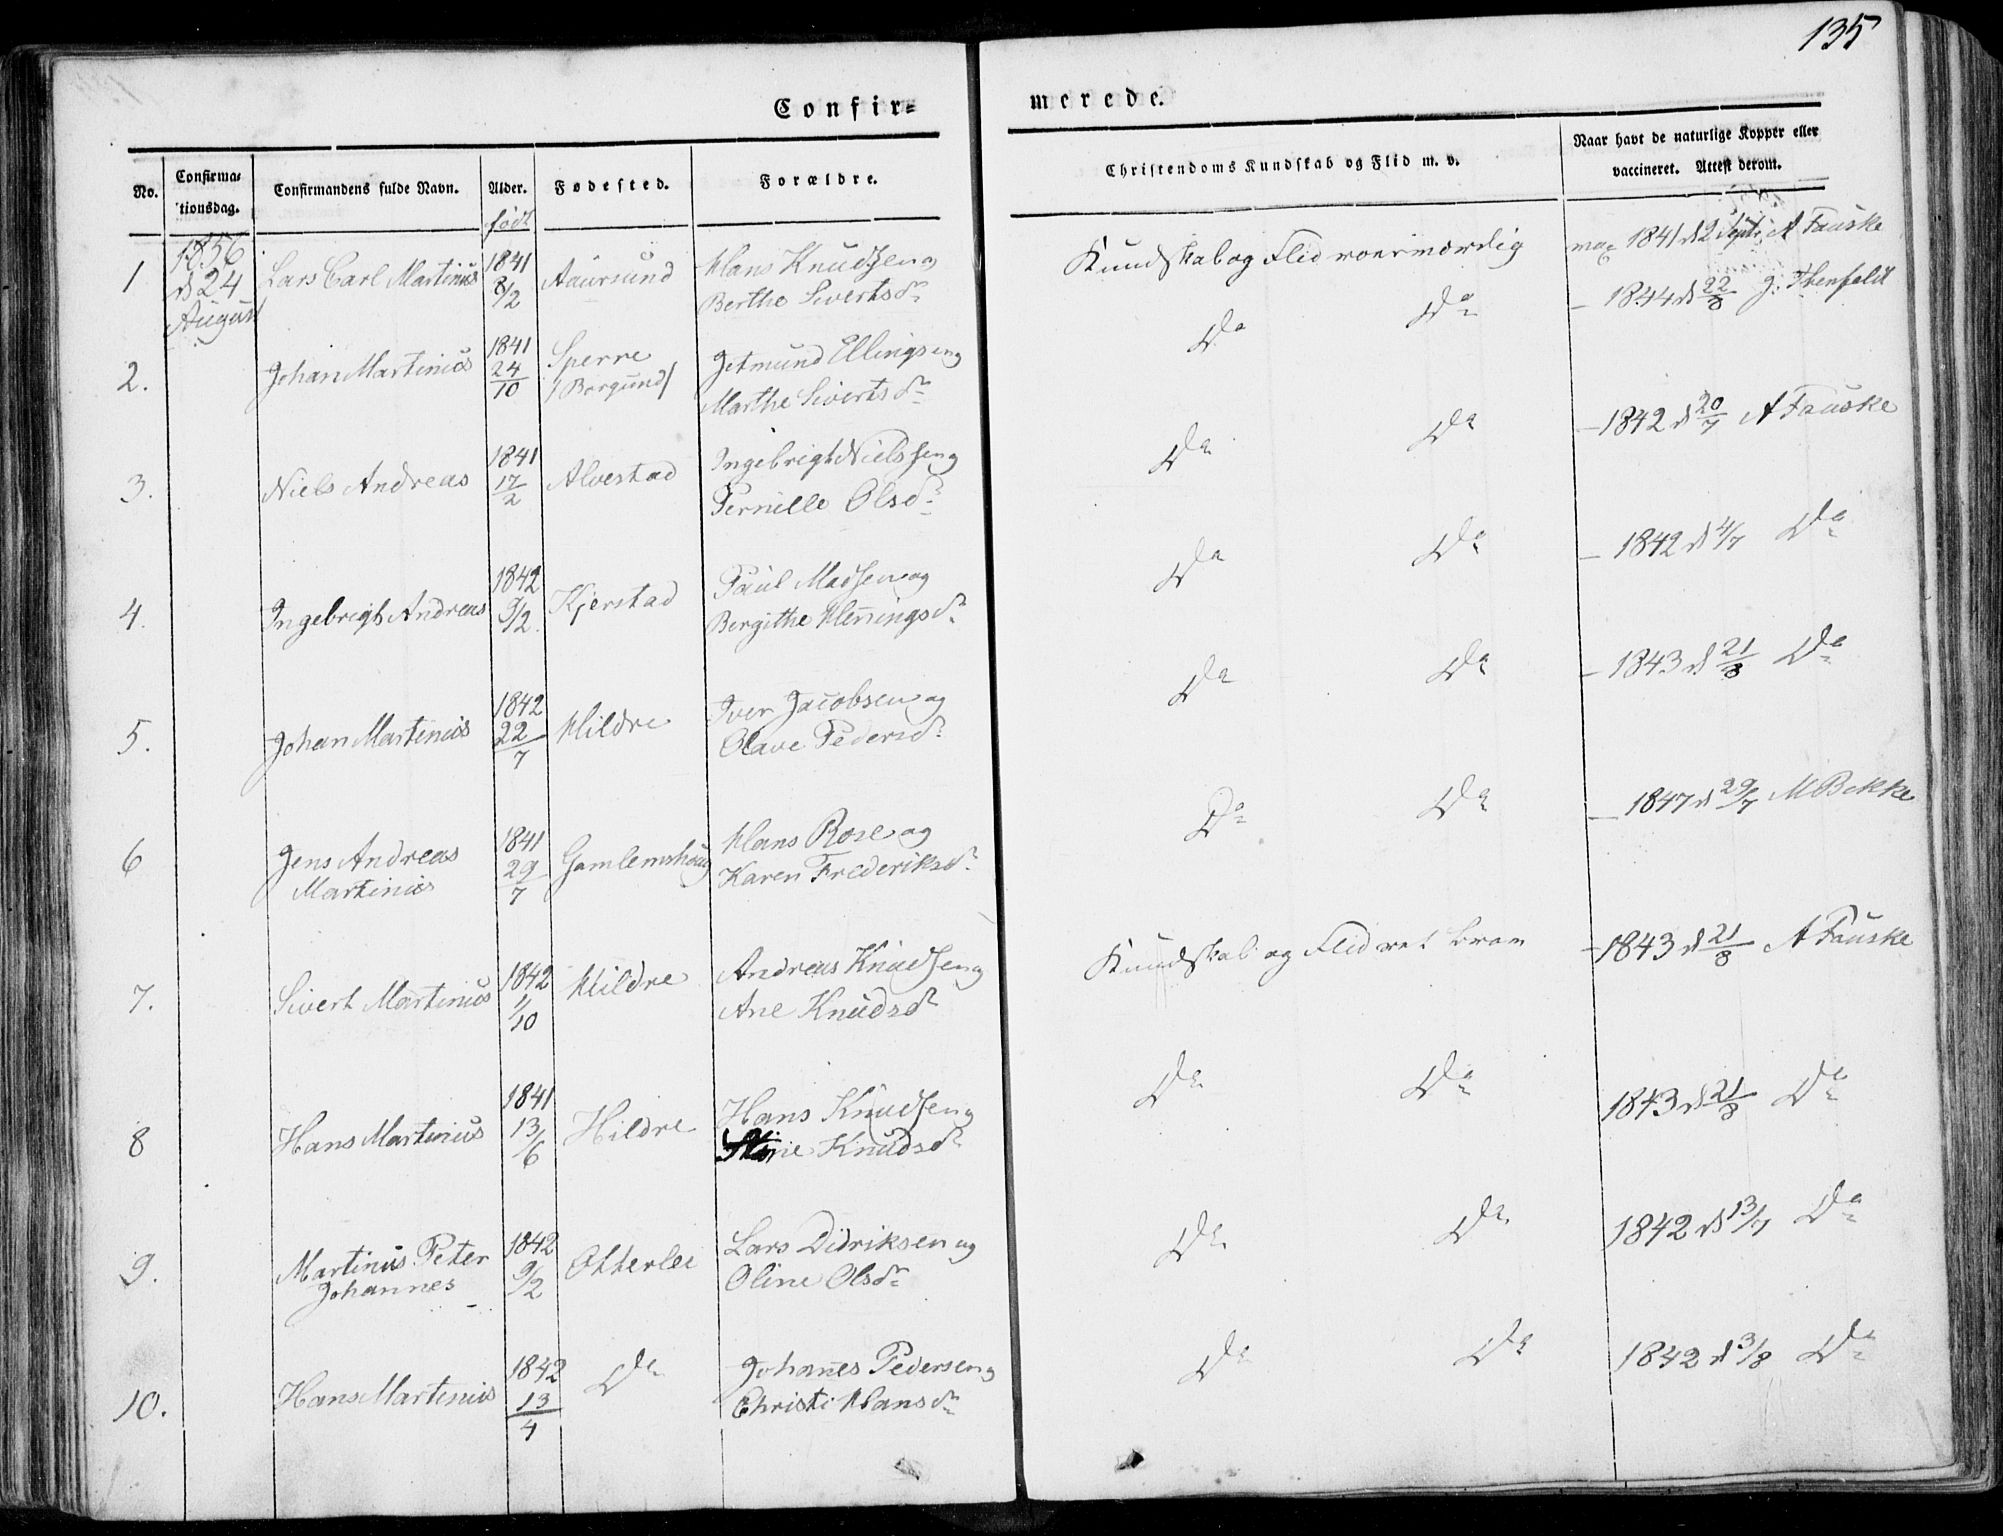 135
Confir=
merede.
No.
Confirma=
tionsdag.
Confirmandens fulde Navn.
Alder.
født
Fødested.
Forældre.
Christendoms Kundskab og Flid m. v.
Naar havt de naturlige Kopper eller
vaccineret. Attest derom.
1
1856
d 24
August
Lars Carl Martinus
1841
8/2
Aaursund
Hans Knudsen og
Berthe Sivertsdr
Kundskab og Flid
vac 1841 d 2 Septr A Fauske
2.
Johan Martinus
1841
24/10
Sperre
/Borgund/
Jetmund Ellingsen og
Marthe Sivertsdr
Do Do
— 1844 d 22/8
3.
Niels Andreas
1841
17/2
Alvestad
Ingebrigt Nielssen og
Pernille Olsdr
Do Do
— 1842 d 20/7 A Fauske
4.
Ingebrigt Andreas
1842
9/2
Kjerstad
Paul Madsen og
Bergithe Henningsdr
Do Do
— 1842 d 4/7 Do
5.
Johan Martinus
1842
22/7
Hildre
Iver Jacobsen og
Olave Pedersdr
Do Do
— 1843 d 21/8 Do
6
Jens Andreas
Martinus
1841
29/7
Gamlemshaug
Hans Rose og
Karen Frederiksdr
Do Do
— 1847 d 29/7 M Bekke
7.
Sivert Martinus
1842
1/10
Hildre
Andreas Knudsen og
Ane Knudsdr
Kundskab og Flid
— 1843 d 21/8 A Fauske
8
Hans Martinus
1841
13/6
Hildre
Hans Knudsen og
Knudsdr
Do Do
1843 d 21/8 Do
9.
Martinus Peter
Johannes
1842
9/2
Otterlei
Lars Didriksen og
Oline Olsdr
Do Do
1842 d 13/7 Do
10.
Hans Martinus
1842
13/4
Do
Johanes Pedersen og
Christi Hansdr
Do Do
1842 d 3/8 Do